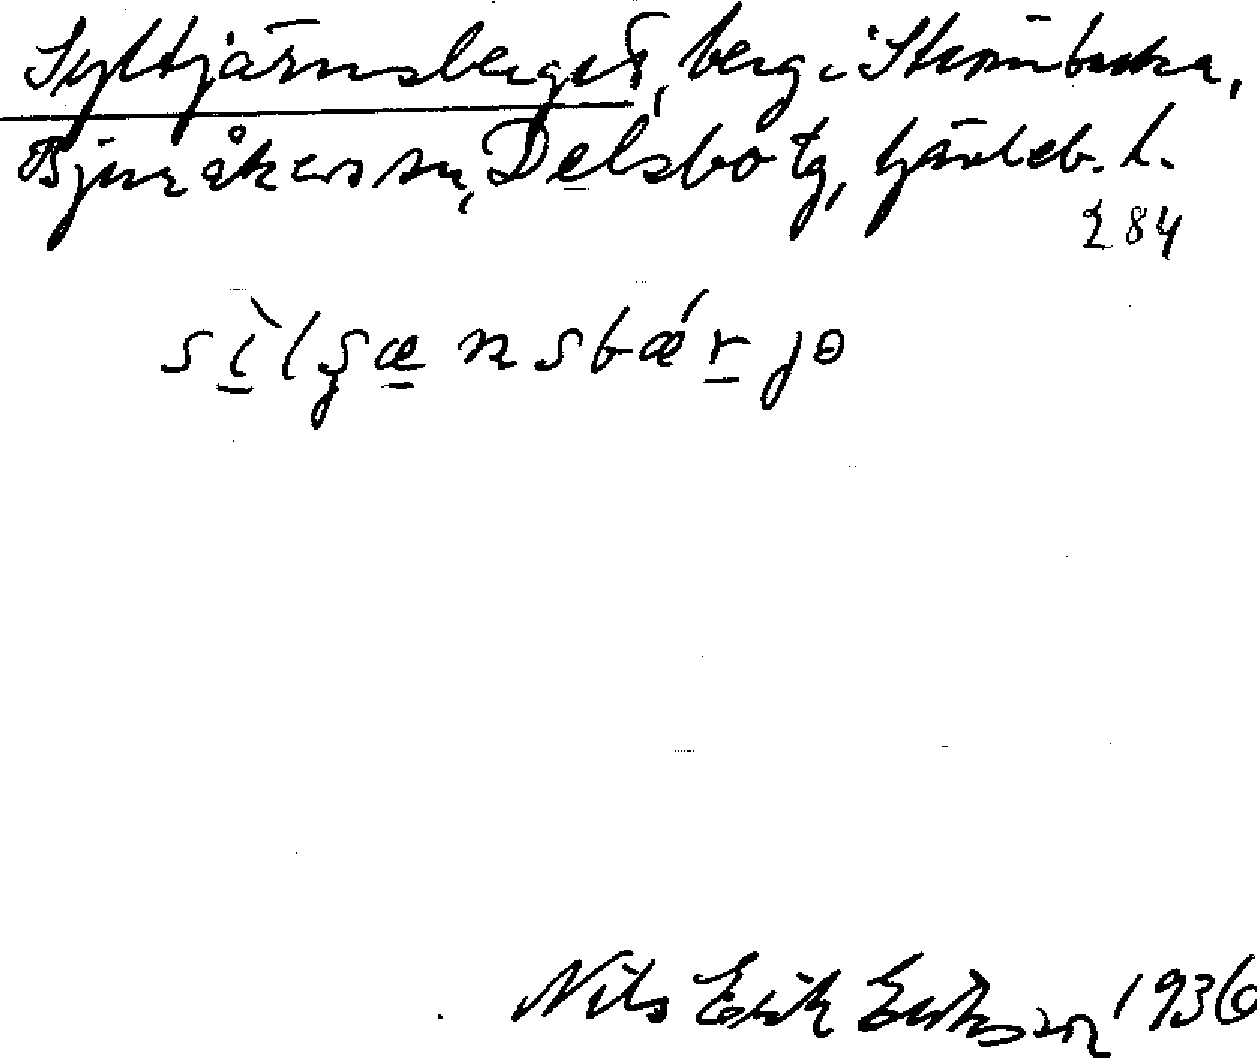 Syltjärnsberget, berg i Stråmbacka,
Bjuråkers sn, Delsbo tg, Gävleb. l.
284
sìlʂænsbǽrjə
Nils Erik Eriksson 1936